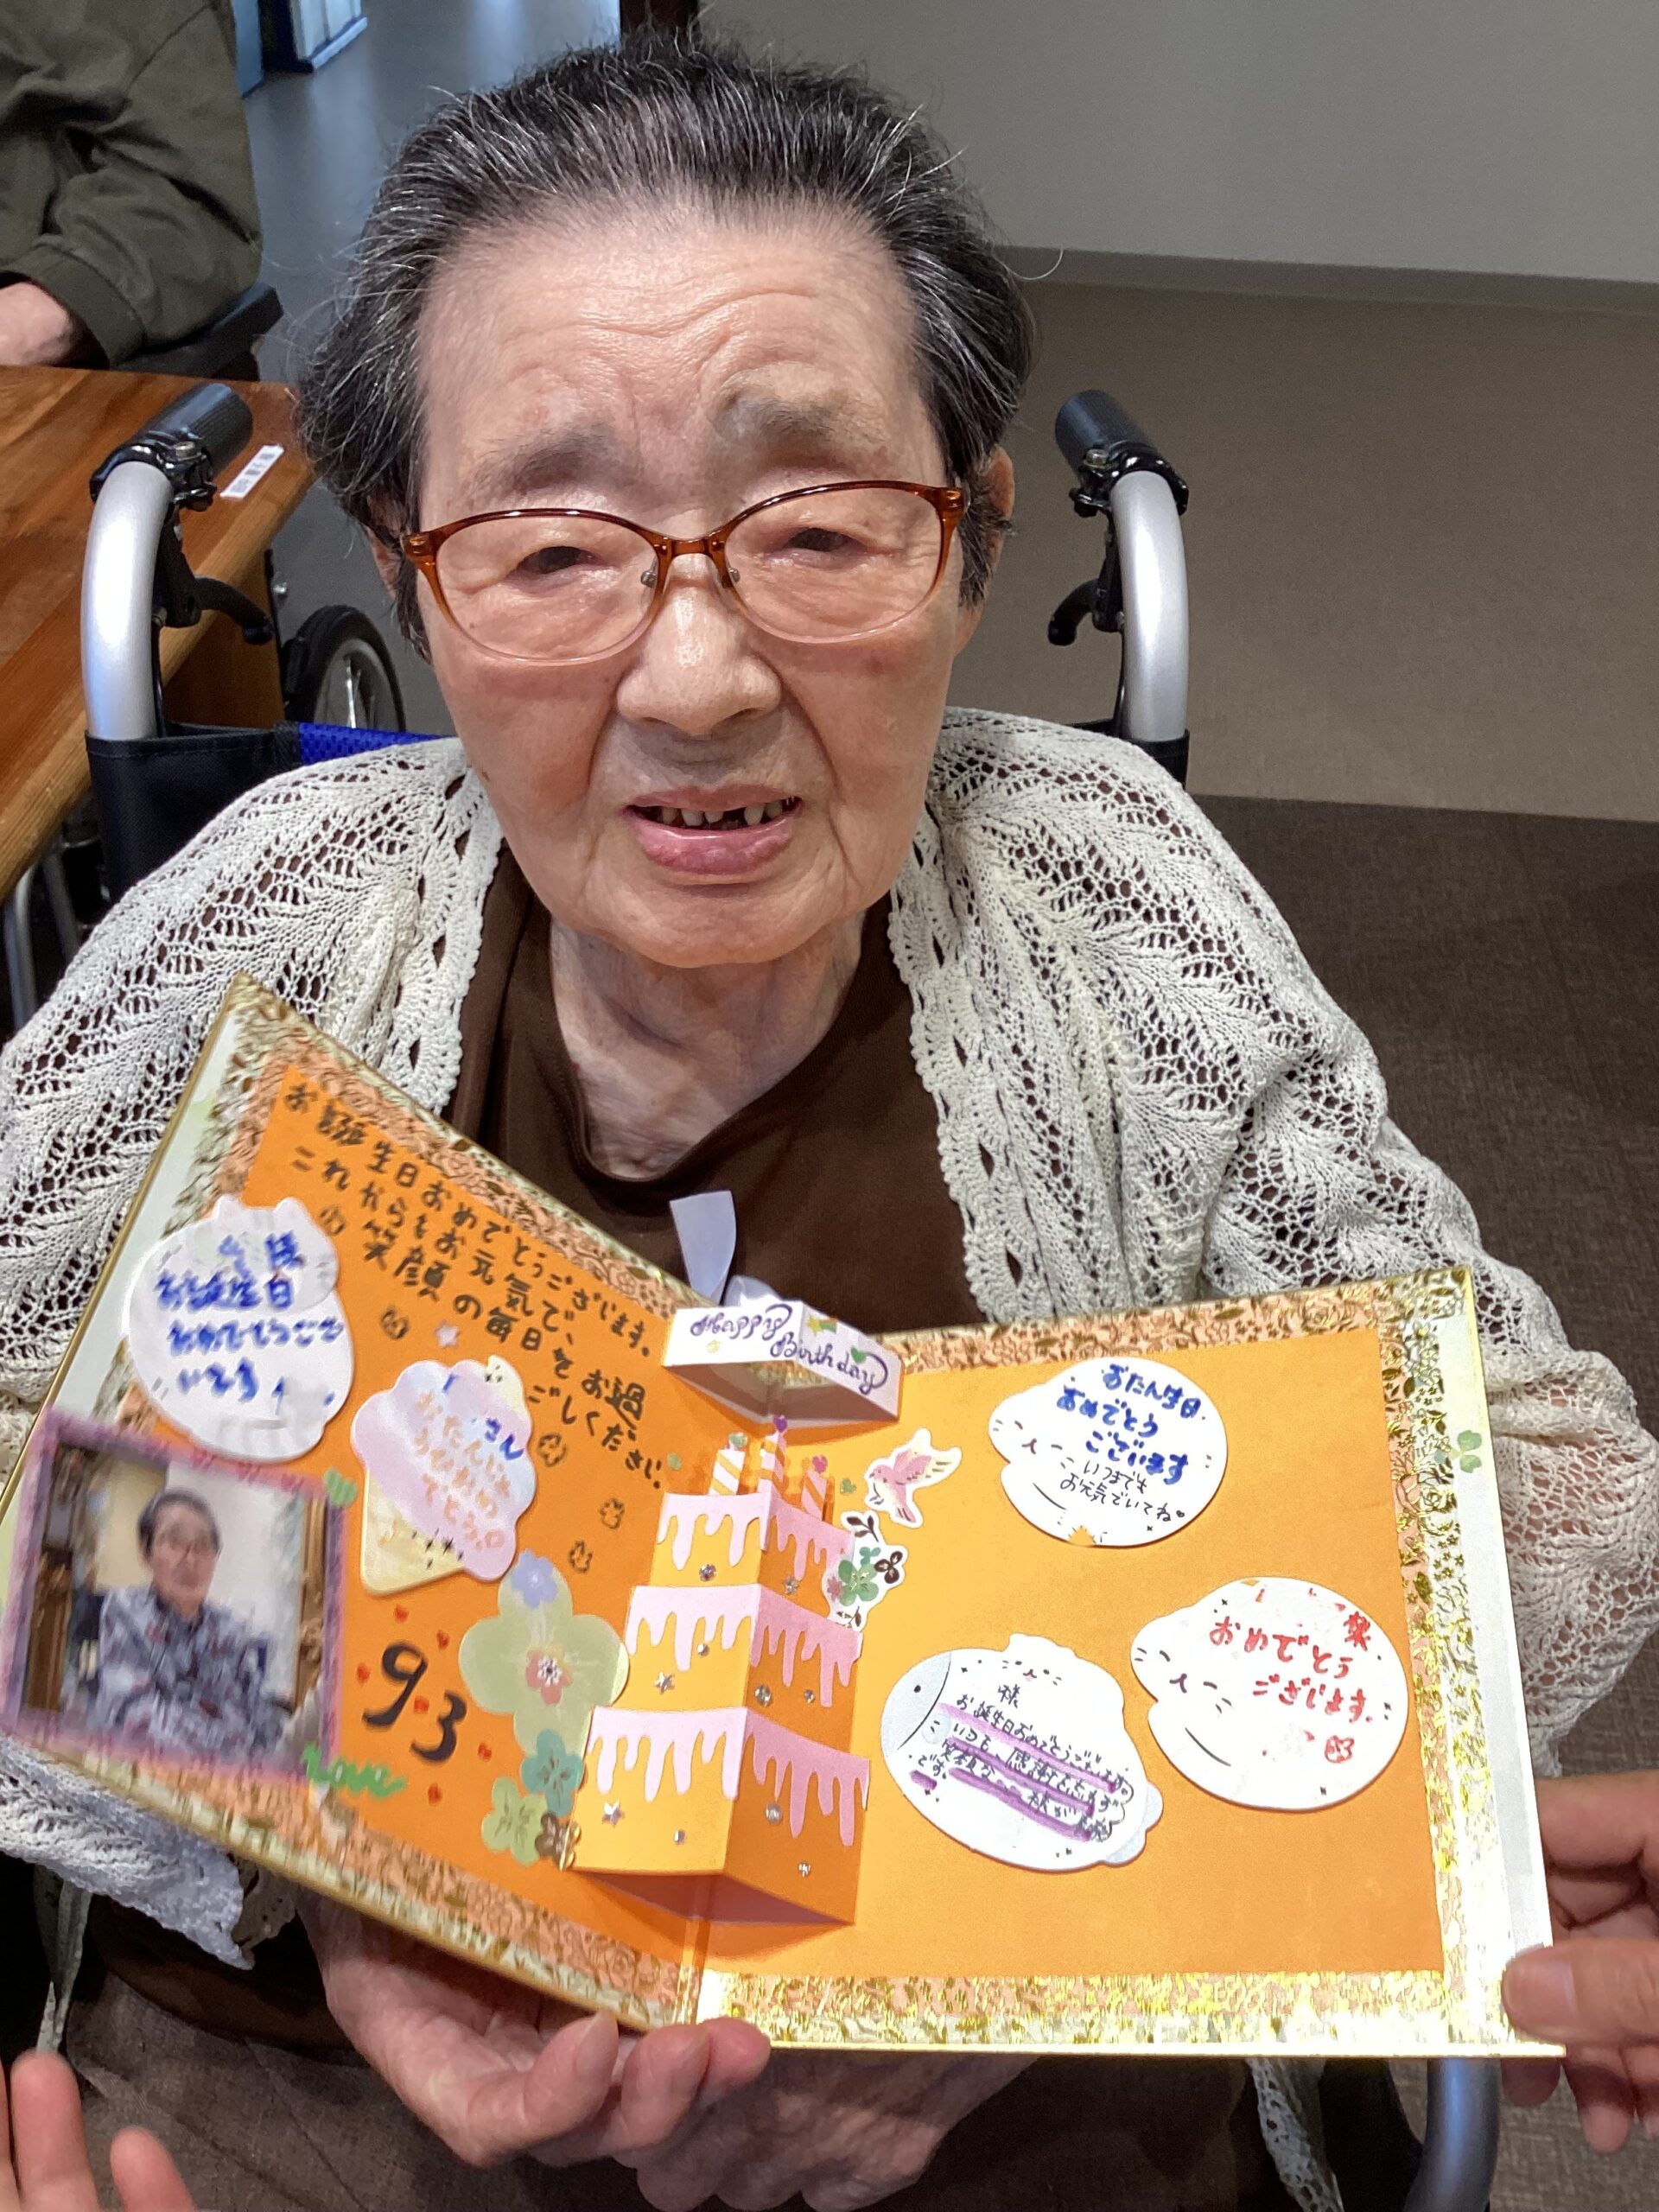 お誕生日おめでとうございます。
これからもお元気で、
笑顔の毎日をお過
ごしください。
様
お誕生日
おめでとうござ
います
さん
おたんじょ
うびおめ
でとう。
93
Love
Happy
Birthday
おたん生日
おめでとう
ございます
いつまでも
お元気でいてね。
様
おめでとう
ございます。
様
お誕生日おめでとうございます。
いつも、感謝
笑顔
です。